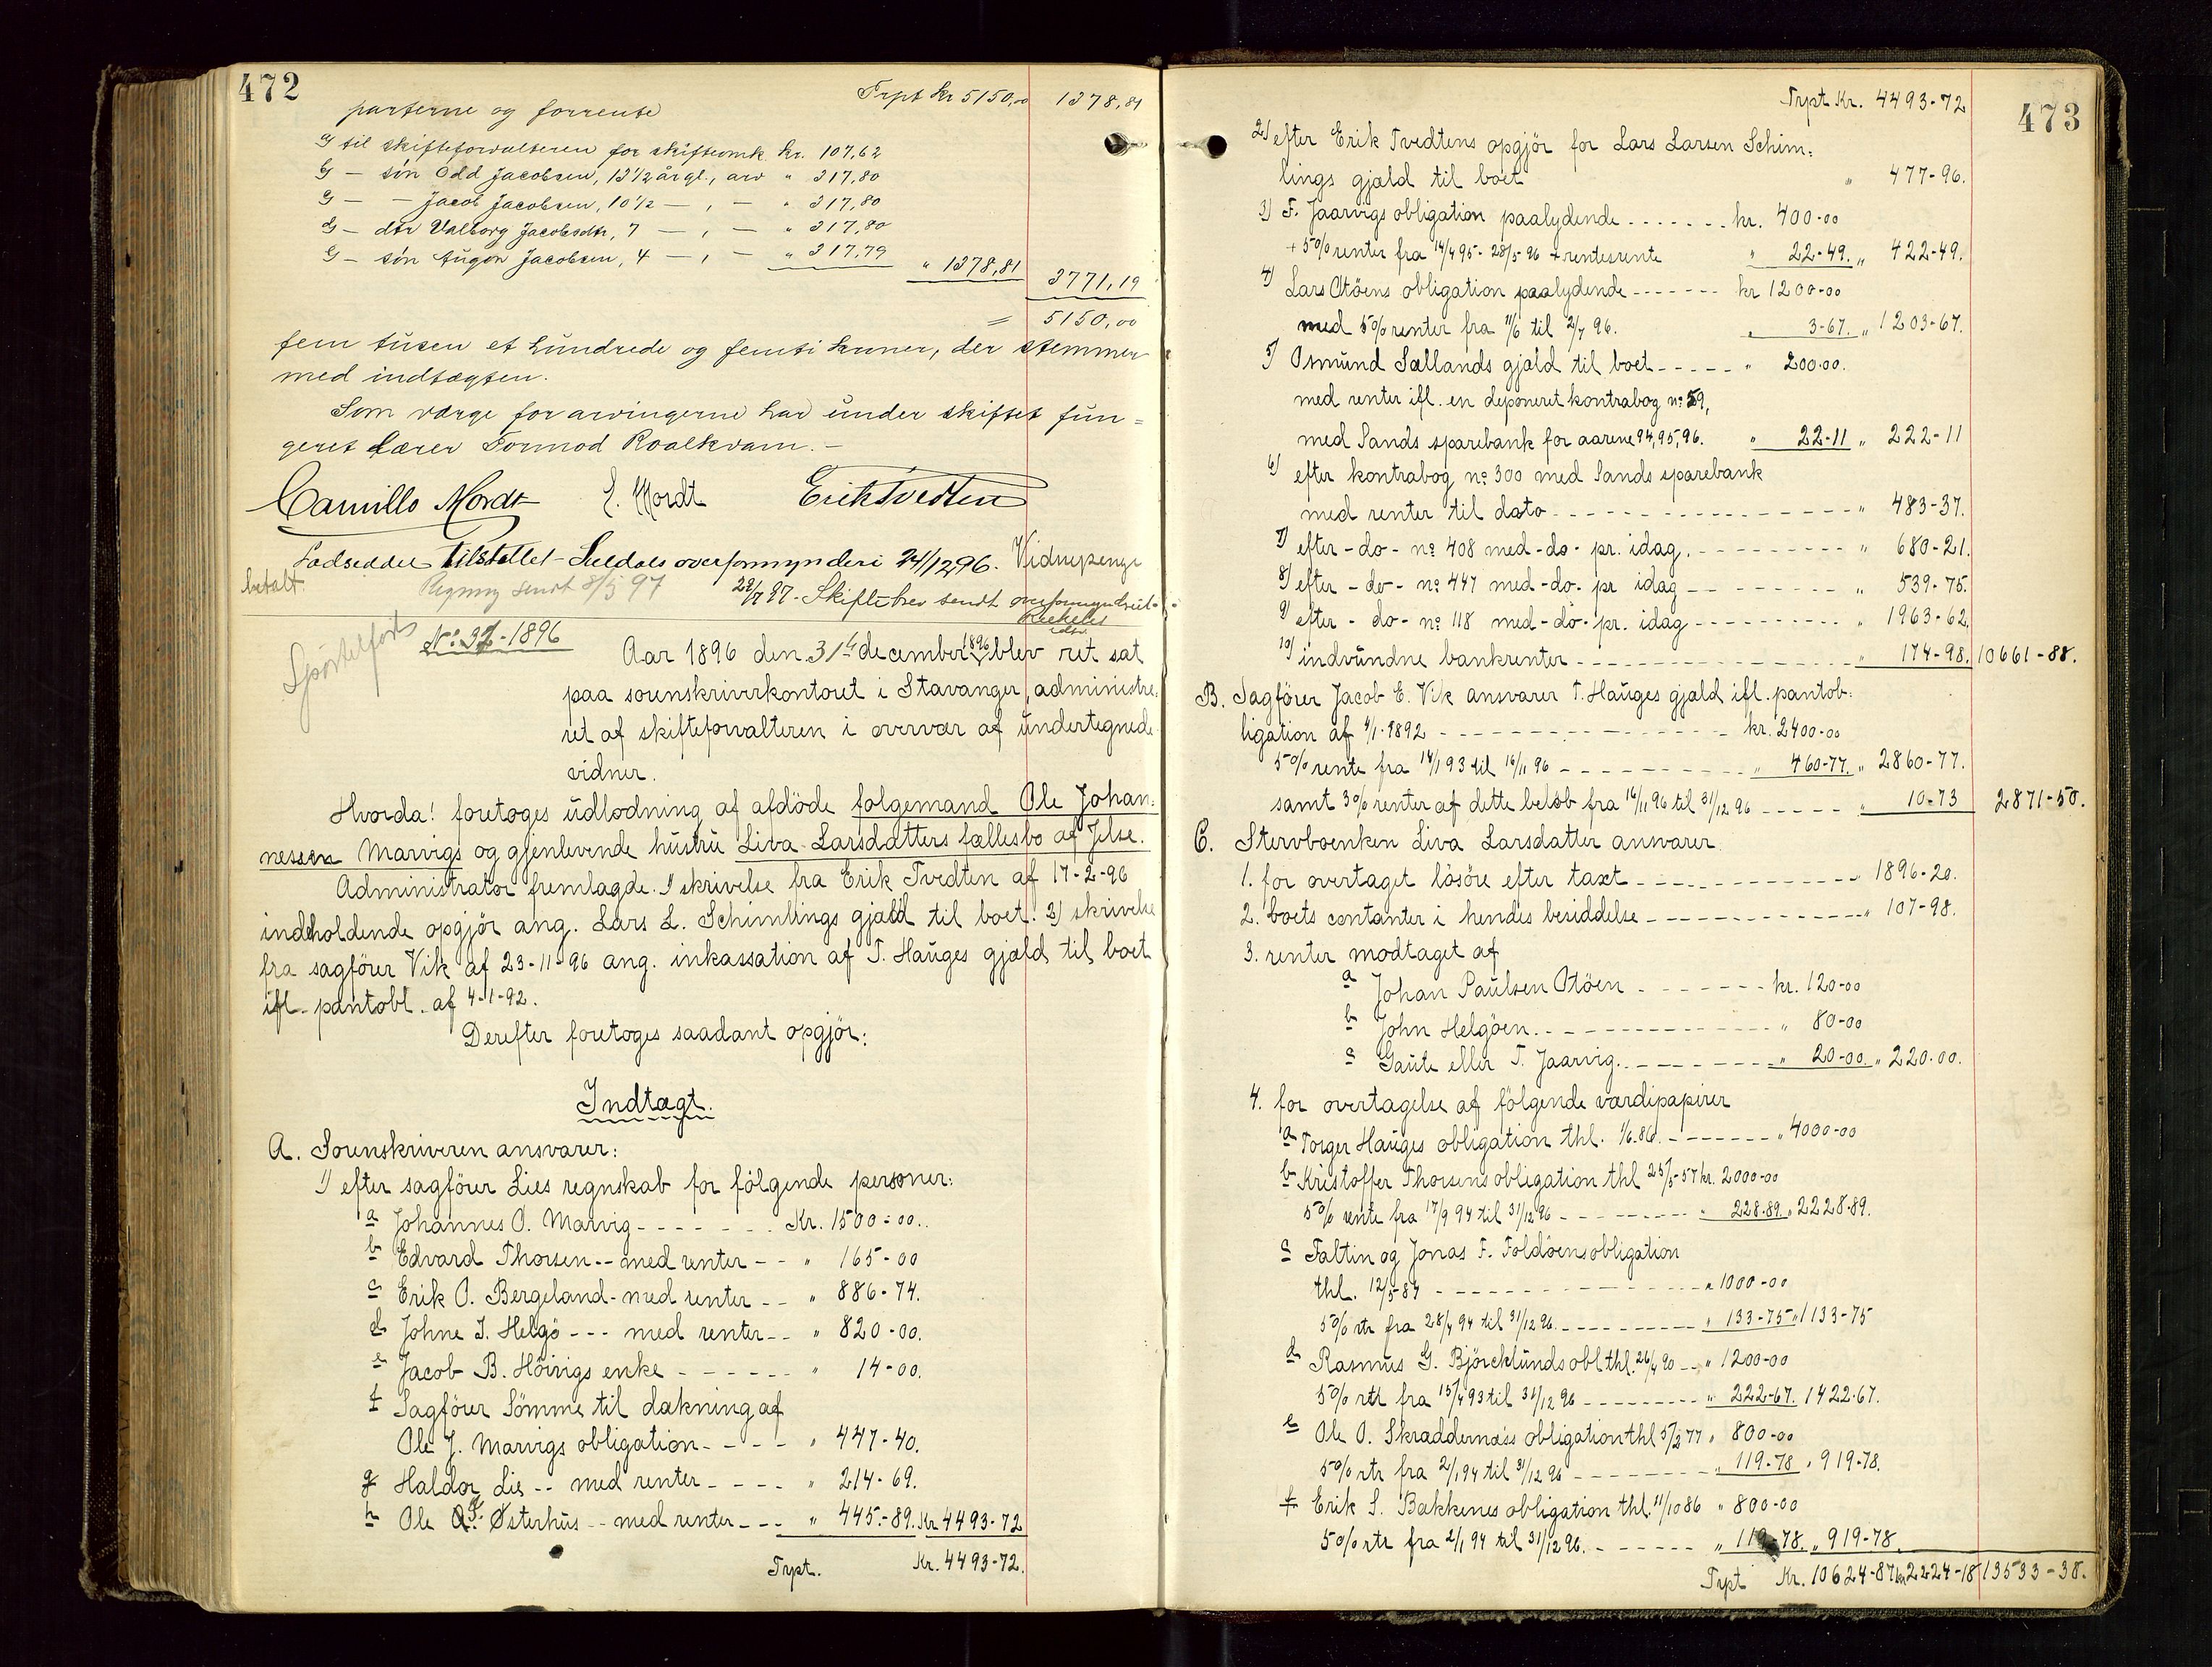 472
Trpt kr 5150,00 1378,81
parterne og forrente
a) til skifteforvalteren for skifteomk. kr. 107,62
b) — søn Odd Jacobsen, 13 1/2 år gl., arv " 317,80
c) — — Jacob Jacobsen, 10 1/2 — , — " 317,80
d) — dtr Valborg Jacobsdtr, 7 — , — " 317,80
e) — søn Augon Jacobsen, 4 — , — " 317,79 " 1378,81 3771,19
= 5150,00
fem tusen et hundrede og femti kroner, der stemmer
med indtægten.
Som værge for arvingerne har under skiftet fun=
geret lærer Tormod Roalkvam. —
Camillo Mordt E. Mordt Erik Tvedten
Lodseddel tilstillet Suldals overformynderi 24/12 96. Vidnepenge
betalt. Regning sendt 8/5 97 22/7 97 - Skiftebrev sendt overformynderiet
No 32 - 1896
Aar 1896 den 31te december 1896 blev ret sat
paa sorenskriverkontoret i Stavanger, administre:
ret af skifteforvalteren i overvær af undertegnede
vidner.
Hvorda! foretoges udlodning af afdöde folgemand Ole Johan:
nessen Marvigs og gjenlevende hustru Liva Larsdatters fællesbo af Jelse.
Administrator fremlagde 1) skrivelse fra Erik Tvedten af 17-2-96
indeholdende opgjör ang. Lars L. Schimlings gjæld til boet. 2) skrivelse
fra sagförer Vik af 23-11-96 ang. inkassation af T. Hauges gjæld til boet
ifl. pantobl. af 4-1-92.
Derefter foretoges saadant opgjör:
Indtægt.
A. Sorenskriveren ansvarer:
1) efter sagförer Lies regnskab for fölgende personer:
a Johannes O. Marvig - - - - - - Kr. 1500-00.
b Edvard Thorsen -- med renter - - " 165-00
c Erik O. Bergeland - med renter - - " 886-74.
d Johne J. Helgö - - - med renter - - " 820-00.
e Jacob B. Höivigs enke - - - - - - " 14-00.
f Sagförer Sömme til dækning af
Ole J. Marvigs obligation - - - - " 447-40.
g Haldor Lie -- med renter - - - - " 214-69.
h Ole Østerhus -- med renter - - - " 445-89. Kr 4493-72
Trpt. Kr. 4493-72.
473
Trpt Kr. 4493-72
2) efter Erik Tvedtens opgjör for Lars Larsen Schim:
lings gjæld til boet " 477-96.
3) F. Jaarvigs obligation paalydende - - - - - - kr. 400-00
+ 5% renter fra 14/4 95 - 28/5 96 + rentesrente " 22-49. " 422-49.
4) Lars Otöens obligation paalydende - - - - - - kr 1200-00
med 5% renter fra 11/6 til 2/7 96. " 3-67. " 1203-67.
5) Osmund Sællands gjæld til boet - - - - - " 200-00.
med renter ifl. en deponeret kontrabog no 59,
med Sands sparebank for aarene 94, 95, 96. " 22-11 " 222-11
6) efter kontrabog no 300 med Sands sparebank
med renter til dato - - - - - - - - - " 483-37.
7) efter - do - no 408 med - do - pr. idag. - - - - - " 680-21.
8) efter - do - no 447 med - do - pr idag - - - - - " 539-75.
9) efter - do - no 118 med - do - pr. idag - - - - - " 1963-62.
10) indvundne bankrenter - - - - - - - - " 174-98. 10661-88.
B. Sagförer Jacob E. Vik ansvarer T. Hauges gjæld ifl. pantob:
ligation af 4/1-1892 - - - - - - - - kr. 2400-00
5% rente fra 14/1 93 til 16/11 96 - - - - - " 460-77. " 2860-77.
samt 3% renter af dette belöb fra 16/11 96 til 31/12 96 - - - - - " 10-73 2871-50.
C. Stervboenken Liva Larsdatter ansvarer
1. for overtaget lösöre efter taxt - - - - - - - " 1896-20.
2. boets contanter i hendes besiddelse - - - - - - - " 107-98.
3. renter modtaget af
a Johan Paulsen Otöen - - - - - - kr. 120-00
b John Helgöen. - - - - - - - - " 80-00
c Gaute eller T. Jaarvig. - - - - - - " 20-00. " 220-00.
4. for overtagelse af fölgende værdipapirer
a Torger Hauges obligation thl. 1/6.86. - - - - - " 4000-00
b Kristoffer Thorsens obligation thl 25/5-57 kr. 2000-00
5% rente fra 17/9 94 til 31/12 96 - - - - - " 228-89. " 2228-89.
c Faltin og Jonas F. Foldöens obligation
thl. 12/5-84 - - - - - - - - " 1000-00
5% rtr fra 28/4 94 til 31/12 96. - - - - - " 133-75 " 1133-75
d Rasmus G. Björcklunds obl thl. 26/4 90 - - " 1200-00
5% rtr fra 15/4 93 til 31/12 96 - - - - - " 222-67. 1422-67.
e Ole O. Skraddernæss obligation thl 5/2 77 " 800-00
5% rtr fra 2/1 94 til 31/12 96 - - - - - " 119-78 " 919-78.
f Erik S. Bakkenes obligation thl. 11/10 86 " 800-00
5% rtr fra 2/1 94 til 31/12 96. - - - - - " 119-78. " 919-78.
Trpt Kr. 10624-87 kr 2224-18 13533-38.